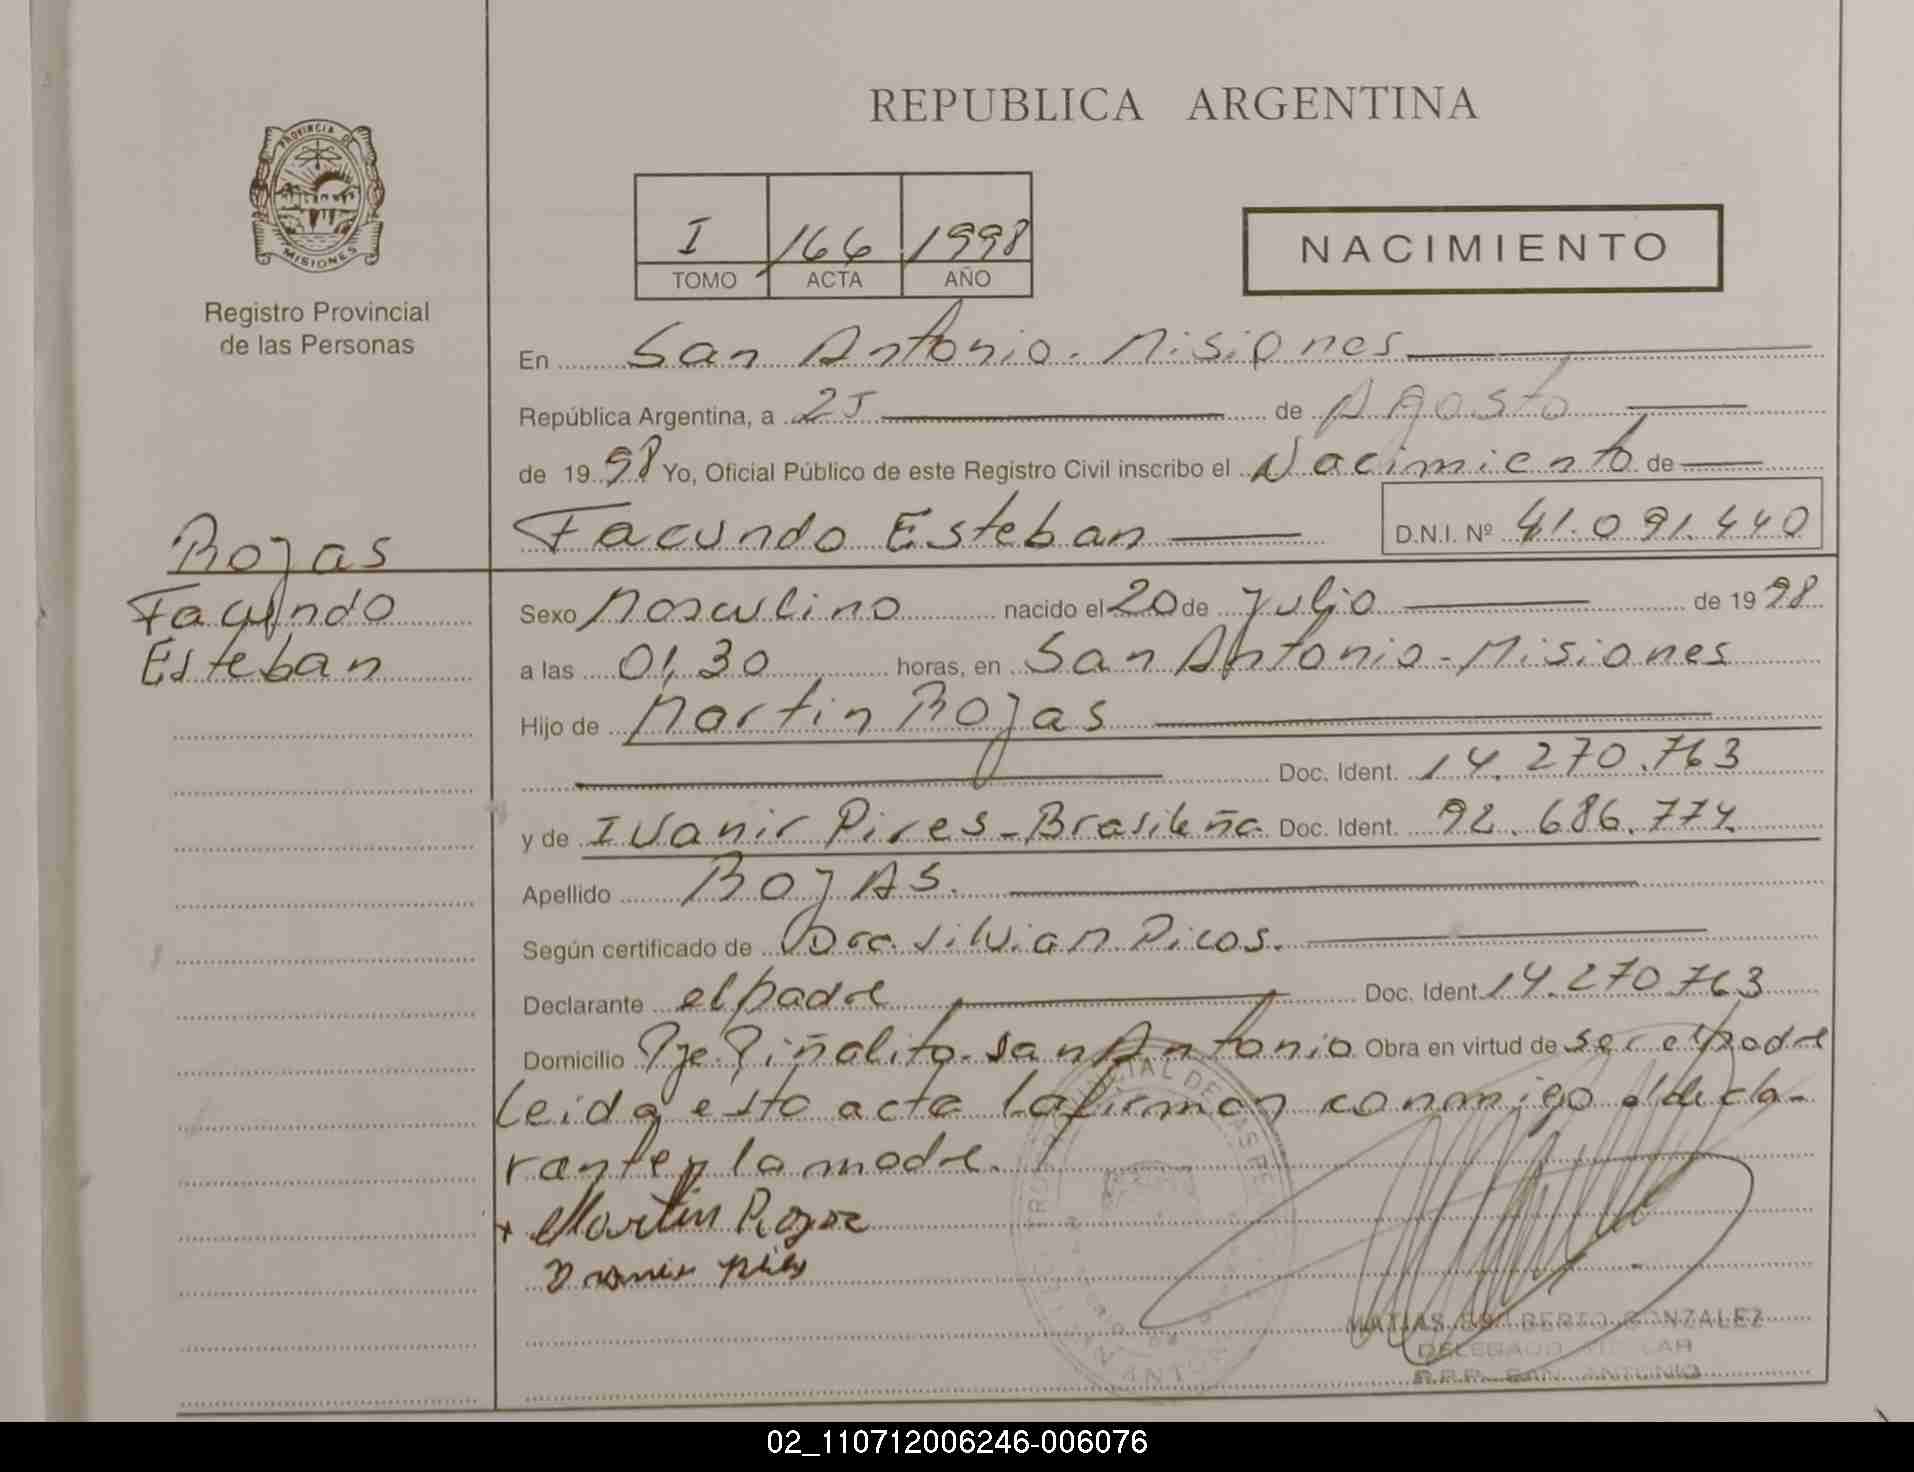 REPUBLICA ARGENTINA
PROVINCIA DE
MISIONES
Registro Provincial
de las Personas
I 166 1998
TOMO ACTA AÑO
NACIMIENTO
En San Antonio - Misiones
República Argentina, a 25 de Agosto
de 1998 Yo, Oficial Público de este Registro Civil inscribo el Nacimiento de
Facundo Esteban D.N.I. Nº 41.091.440
Rojas
Facundo
Esteban
Sexo Masculino nacido el 20 de Julio de 1998
a las 01,30 horas, en San Antonio - Misiones
Hijo de Martin Rojas
Doc. Ident. 14.270.763
y de Ivanir Pires - Brasileña Doc. Ident. 92.686.774
Apellido ROJAS.
Según certificado de Dra. Silvian
Declarante el padre Doc. Ident 14.270.763
Domicilio Pje. Piñalito - San Antonio Obra en virtud de ser el padre
Leida esta acta la firman conmigo el decla-
rante y la madre.
Martin Rojas
MATIAS GONZALEZ
DELEGADO
SAN ANTONIO
02_110712006246-006076